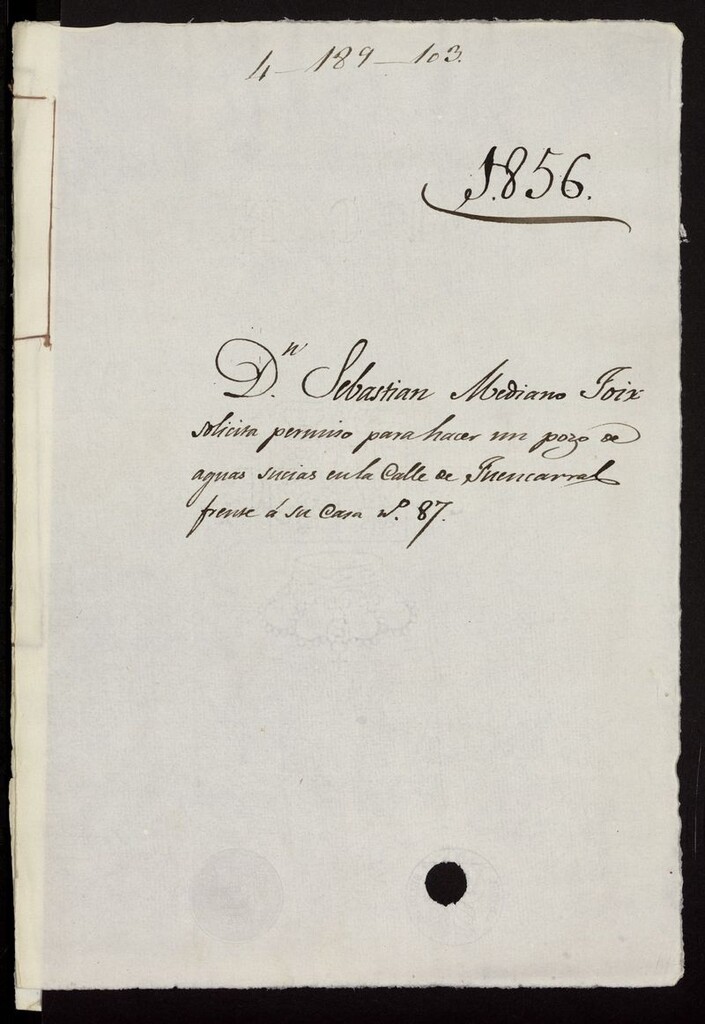 4-189-103.
1856.
Dn. Sebastian Mediano Foix
solicita permiso para hacer un pozo de
aguas sucias en la Calle de Fuencarral
frente á su Casa nº. 87.